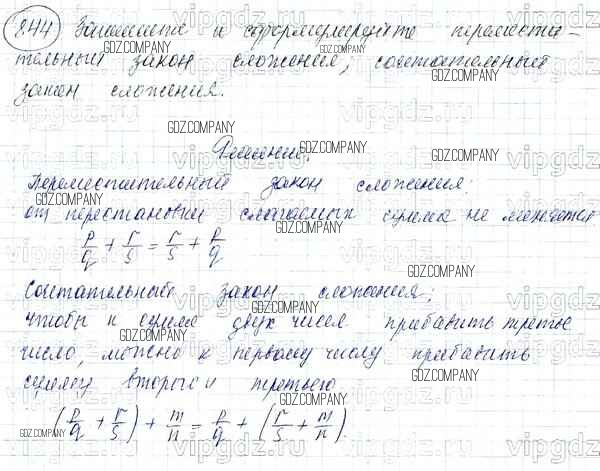 844 Запишите и сформулируйте перемести-
тельный закон сложения, сочетательный
закон сложения.
Решение.
Переместительный закон сложения:
от перестановки слагаемых сумма не меняется
p/q + r/s = r/s + p/q
Сочетательный закон сложения:
чтобы к сумме двух чисел прибавить третье
число, можно к первому числу прибавить
сумму второго и третьего
(p/q + r/s) + m/n = p/q + (r/s + m/n).